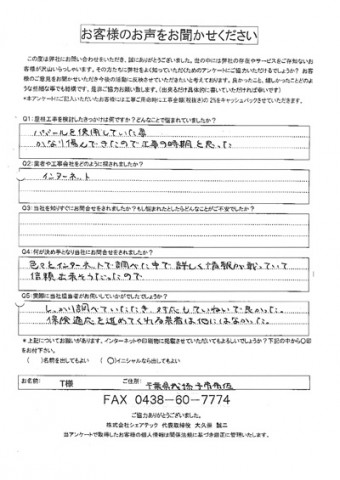 お客様のお声をお聞かせください
この度は弊社にお問い合わせをいただき、誠にありがとうございました。世の中には弊社の存在やサービスをご存知ないお
客様が沢山いらっしゃいます。その方たちに弊社をよく知っていただくためのアンケートにご協力いただけますでしょうか？お客
様のご意見をお聞かせいただき今後の活動に反映させていただきたいと考えております。良かったこと、嬉しかったことどのよ
うな些細な事でも結構です。是非ご協力お願い致します。(出来るだけ具体的に書いていただければ幸いです)
*本アンケートにご記入いただいたお客様には工事ご用命時に工事金額(税抜き)の2%をキャッシュバックさせていただきます。
Q1:屋根工事を検討したきっかけは何ですか？どんなことで悩まれていましたか？
パベールを使用していた事
かなり傷んできたので工事の時期と思った
Q2:業者や工事会社をどのように探されましたか？
インターネット
Q3:当社を知りすぐにお問合せをされましたか？もし悩まれたとしたらどんなことがご不安でしたか？
Q4:何が決め手となり当社にお問合せをされましたか？
色々とインターネットで調べた中で、詳しく情報が載っていて
信頼出来そうだったので
Q5:実際に当社担当者がお伺いしていかがでしたでしょうか？
しっかり調べていただき、対応もていねいで良かった。
保険適応を進めてくれる業者は他にはなかった。
*上記についてお願いがあります。インターネットや印刷物に掲載させていただいてもよろしいでしょうか？下記の中から〇印
をお付下さい。
(　)名前を出してもよい　(〇)イニシャルなら出してもよい
お名前:　T様　ご住所:　千葉県
FAX 0438-60-7774
ご協力ありがとうございました。
株式会社シェアテック 代表取締役 大久保 誠二
当アンケートで取得したお客様の個人情報は関係法規に基づき厳正に管理いたします。